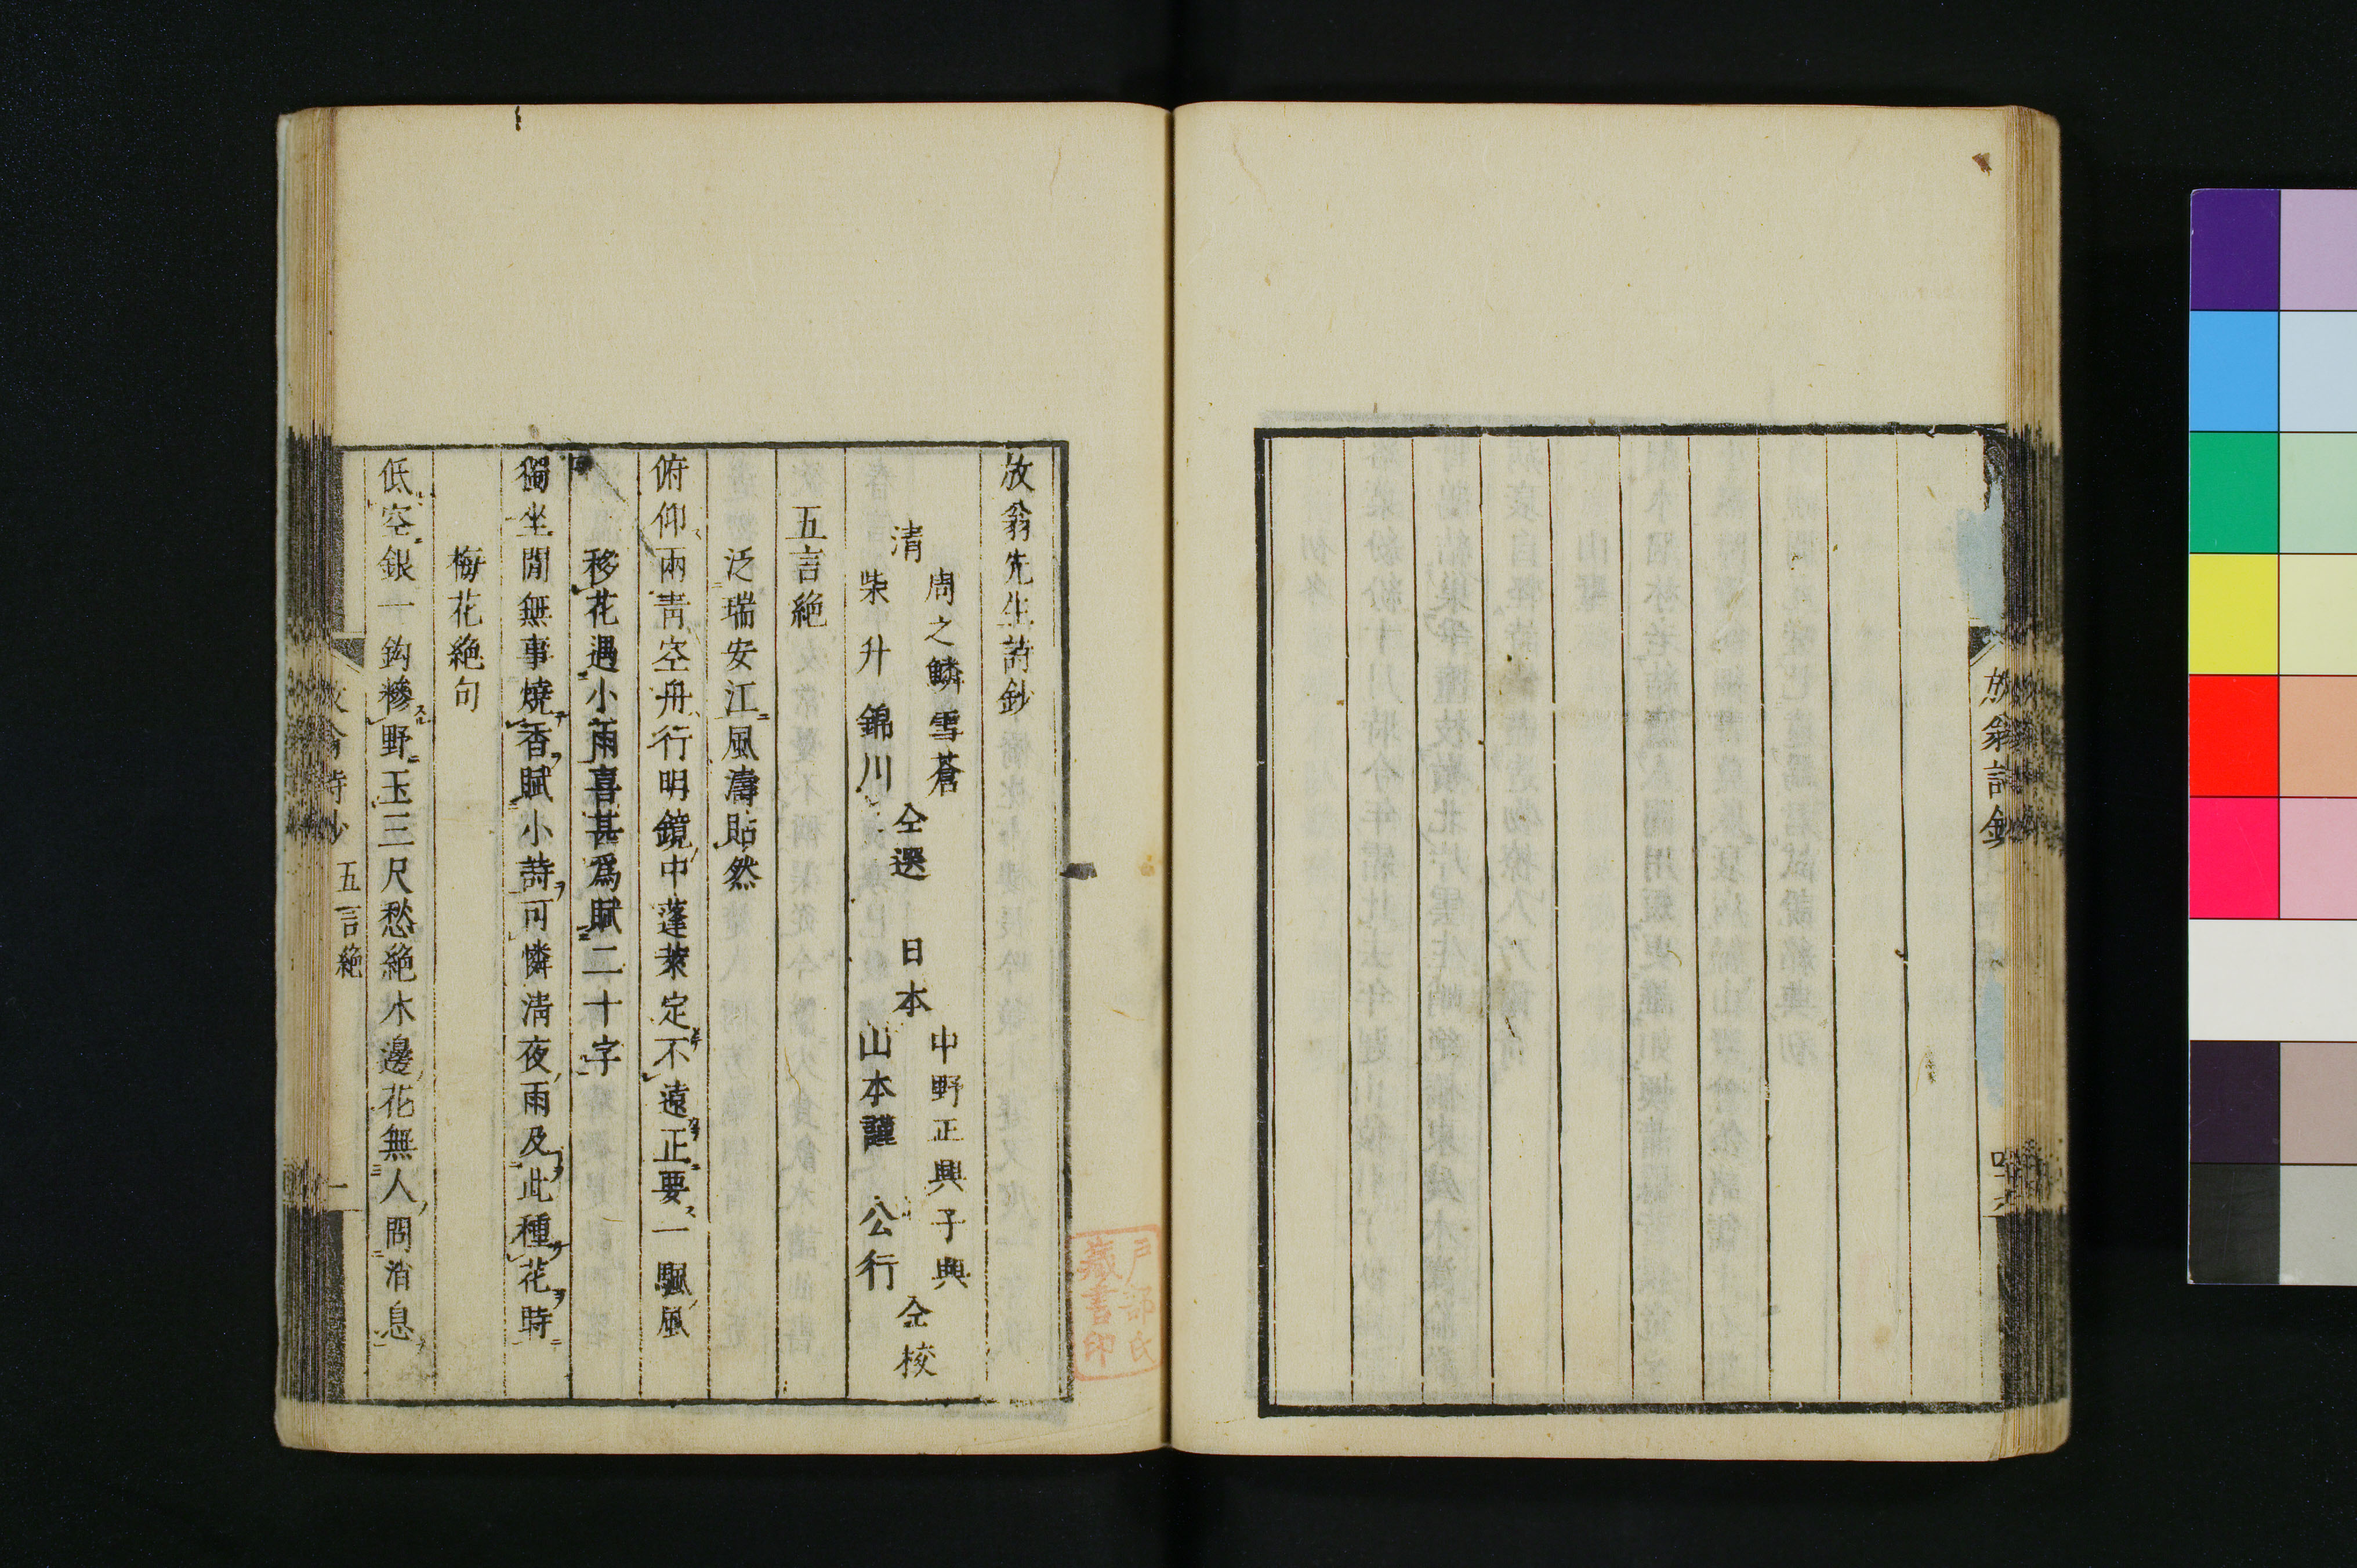 放翁詩鈔
放翁先生詩鈔
清
周之鱗雪蒼
柴升錦川
仝選
日本
中野正興子興
山本謹公行
仝校
五言絶
泛瑞安江風濤貼然
俯仰兩靑空舟行明鏡中蓬萊定不遠正要一颿風
移花遇小雨喜甚爲賦二十字
獨坐閒無事燒香賦小詩可憐淸夜雨及此種花時
梅花絶句
低空銀一鈎糝野玉三尺愁絶水邊花無人問消息
放翁詩鈔
五言絶
一
戸部氏
藏書印